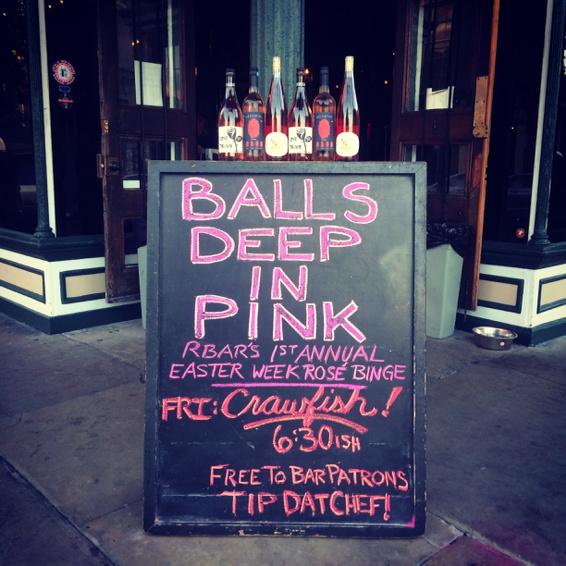 BALLS
DEEP
IN
PINK
RBAR'S 1ST ANNUAL
EASTER WEEK ROSÉ BINGE
FRI: Crawfish!
6:30ISH
FREE TO BAR PATRONS
TIP DAT CHEF!